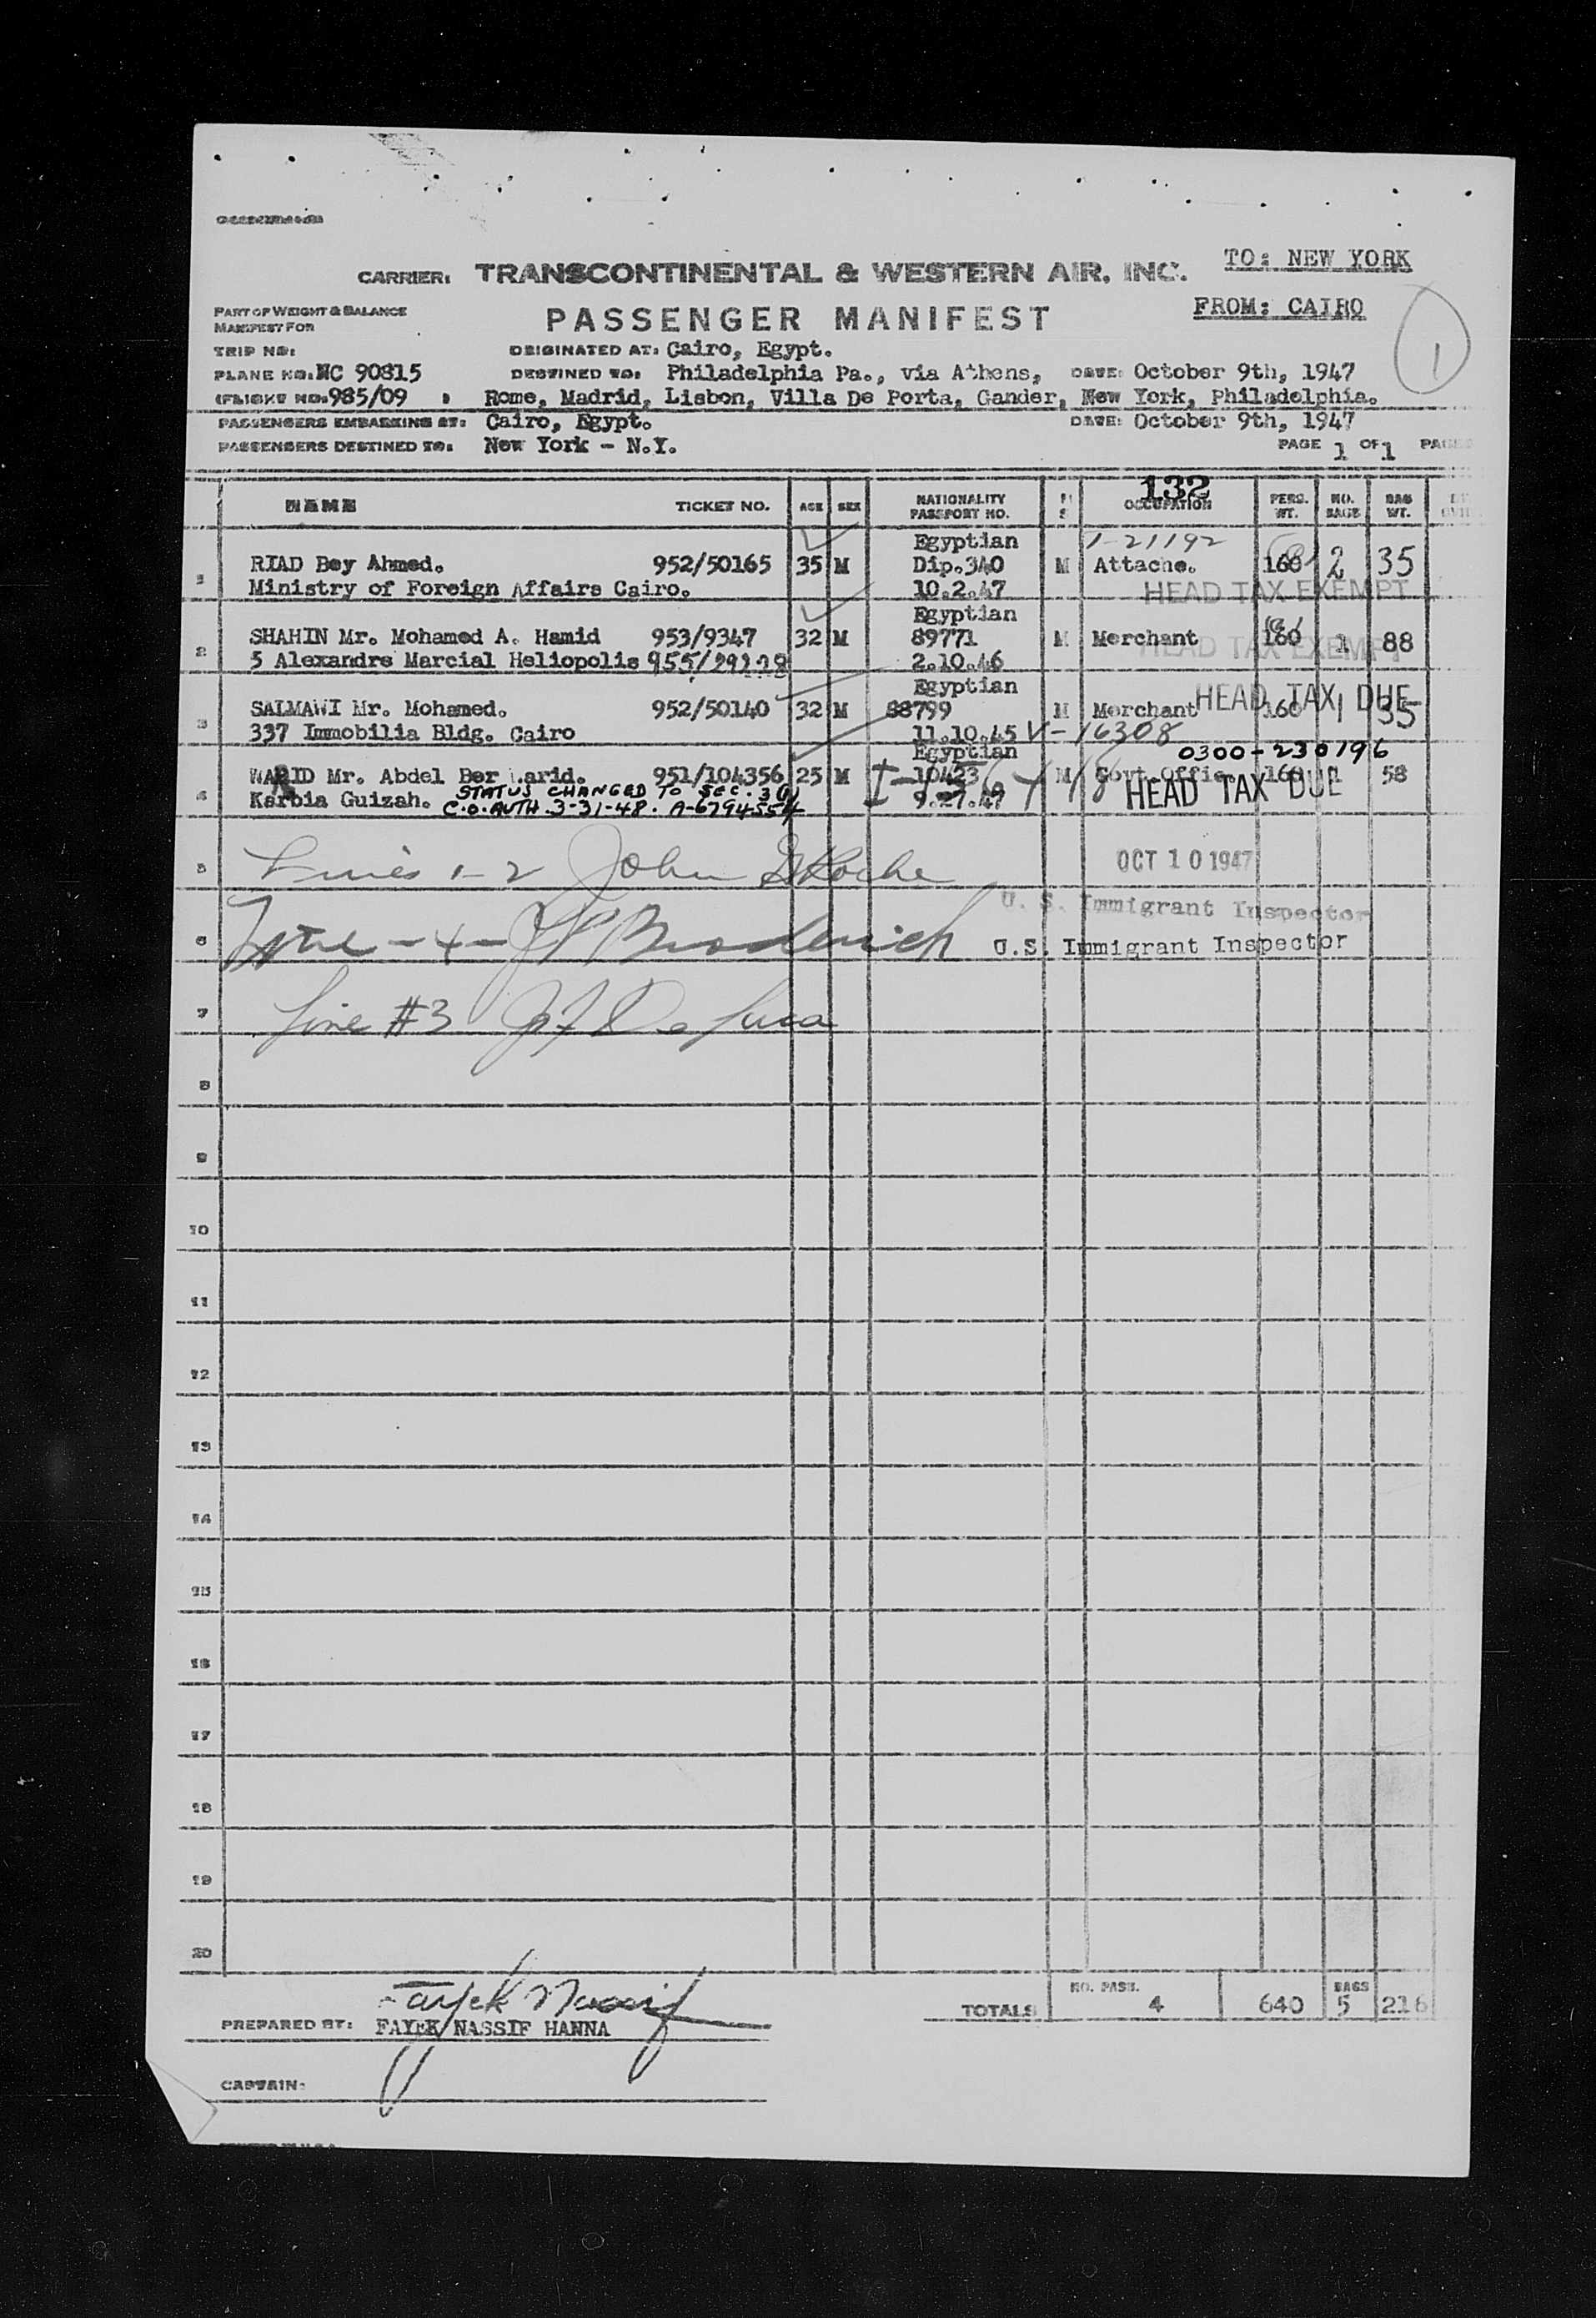 TO: NEW YORK
CARRIER: TRANSCONTINENTAL & WESTERN AIR, INC.
FROM: CAIRO
PART OF WEIGHT & BALANCE
MANIFEST FOR
PASSENGER MANIFEST
1
TRIP NO: ORIGINATED AT: Cairo, Egypt.
PLANE NO: NC 90815 DESTINED TO: Philadelphia Pa., via Athens, DATE: October 9th, 1947
(FLIGHT NO. 985/09 Rome, Madrid, Lisbon, Villa De Porta, Gander, New York, Philadelphia.
PASSENGERS EMBARKING AT: Cairo, Egypt. DATE: October 9th, 1947
PASSENGERS DESTINED TO: New York - N.Y. PAGE 1 OF 1
132
NAME TICKET NO. AGE SEX NATIONALITY PASSPORT NO. OCCUPATION PERS. WT. NO. BAGS BAG WT.
Egyptian 1-21192
1 RIAD Bey Ahmed. 952/50165 35 M Dip.340 M Attache. 160 2 35
Ministry of Foreign Affairs Cairo. 10.2.47 HEAD TAX EXEMPT
Egyptian
2 SHAHIN Mr. Mohamed A. Hamid 953/9347 32 M 89771 M Merchant 160 1 88
5 Alexandre Marcial Heliopolis 2.10.46 HEAD TAX EXEMPT
Egyptian HEAD TAX DUE
3 SALMAWI Mr. Mohamed. 952/50140 32 M 88799 M Merchant 160 1 35
337 Immobilia Bldg. Cairo 11.10.45 V-16308
Egyptian 0300-230196
4 WARID Mr. Abdel Ber Warid. 951/104356 25 M 10423 M Govt. Offic. 160 1 58
STATUS CHANGED TO SEC. 3
Karbia Guizah. C.O. AUTH. 3-31-48. HEAD TAX DUE
5 Lines 1-2 John OCT 10 1947
U. S. Immigrant Inspector
6 Line -4- Broderich U.S. Immigrant Inspector
7 Line #3 De Luca
8
9
10
11
12
13
14
15
16
17
18
19
20
TOTALS NO. PASS. 4 640 BAGS 5 216
PREPARED BY: FAYEK NASSIF HANNA
CAPTAIN: